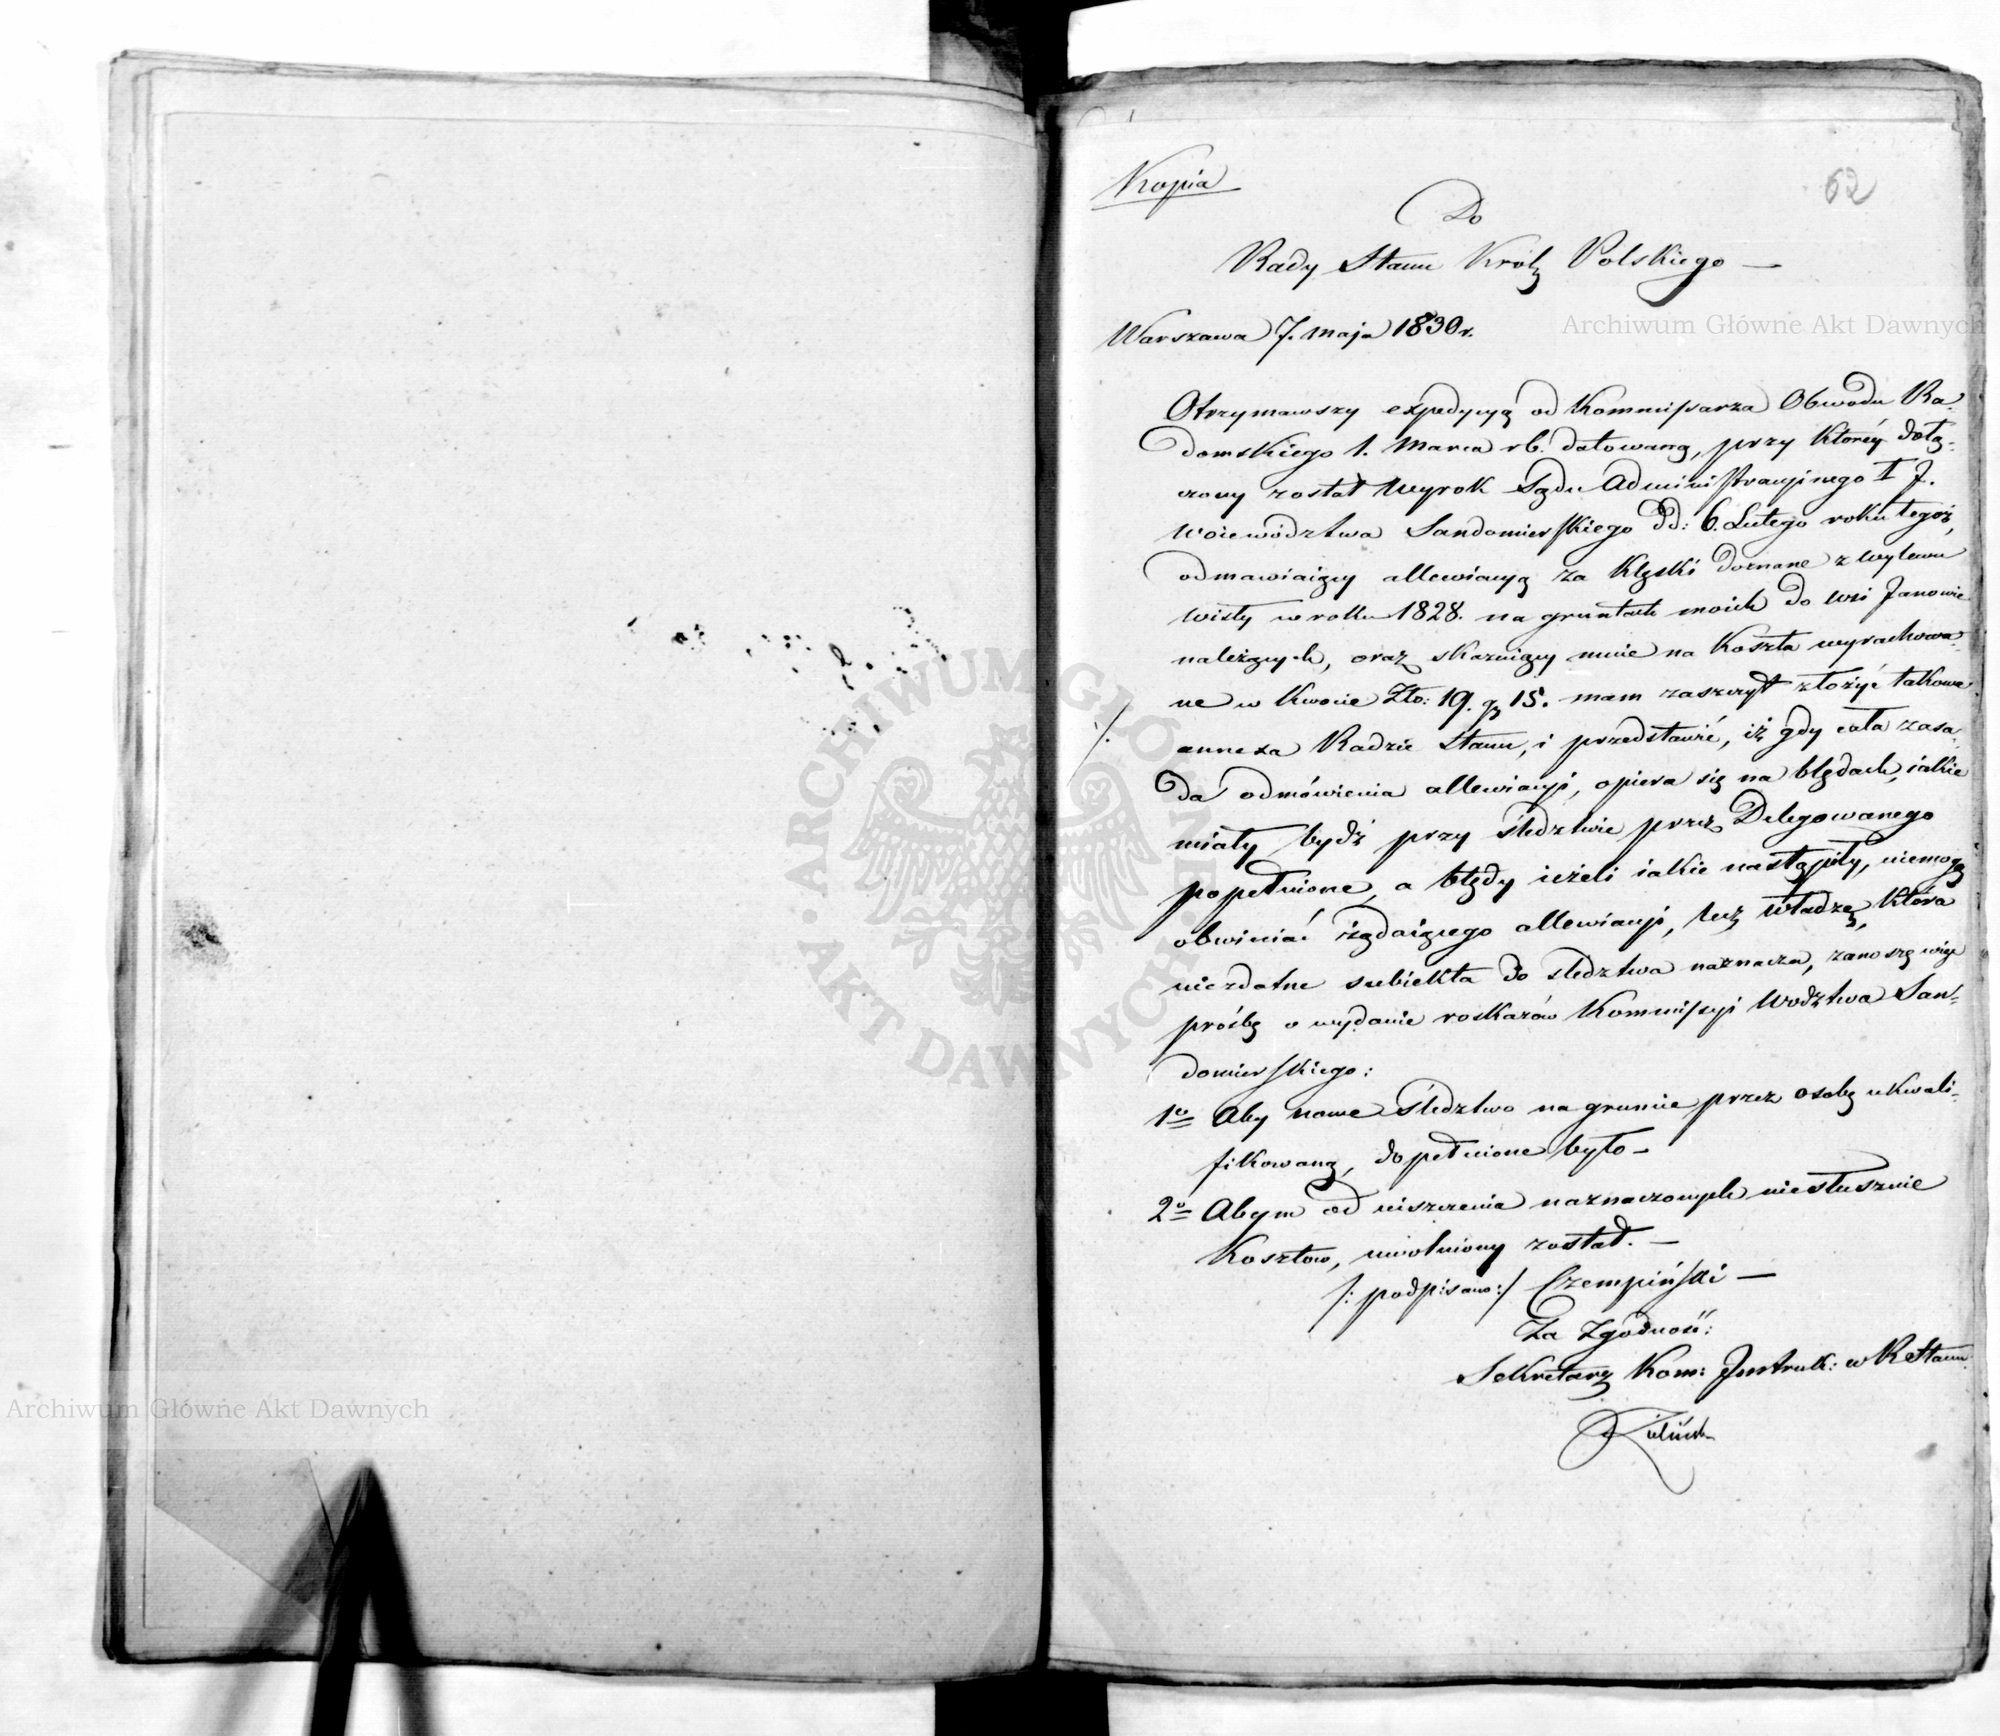 Kopia
62
Do
Rady Stanu Król. Polskiego —
Warszawa 7. Maja 1830 r.
Archiwum Główne Akt Dawnych
Otrzymawszy expedycyą od Kommissarza Obwodu Ra-
domskiego 1. Marca rb. datowaną, przy któréy dołą-
czony został Wyrok Sądu Administracyinego I J.
Województwa Sandomierskiego dd: 6. Lutego roku tegoż,
odmawiaiący allewiacyą za klęski doznane z wylewu
Wisły w roku 1828. na gruntach moich do wsi Janowie
należących, oraz skazuiący mnie na koszta wyrachowa-
ne w kwocie Zło: 19. gr 15. mam zaszczyt złożyć takowe
annexa Radzie Stanu, i przedstawić, iż gdy cała zasa-
da odmówienia allewiacyi, opiera się na błędach, iakie
miały bydź przy śledztwie przez Delegowanego
popełnione, a błędy ieżeli iakie nastąpiły, niemogą
obwiniać żądaiącego allewiacyi, lecz władzę, która
niezdatne subiekta do śledztwa naznacza, zanoszę więc
prośbę o wydanie roskazów Kommissyi Wodztwa San-
domierskiego:
1o Aby nowe śledztwo na gruncie przez osobę ukwali-
fikowaną, dopełnione było —
2o Abym od uiszczenia naznaczonych niesłusznie
kosztów, uwolniony został. —
/: podpisano :/ Czempiński —
Za Zgodność:
Sekretarz Kom: Instruk: w R Stanu
ARCHIWUM GŁÓWNE AKT DAWNYCH
Archiwum Główne Akt Dawnych